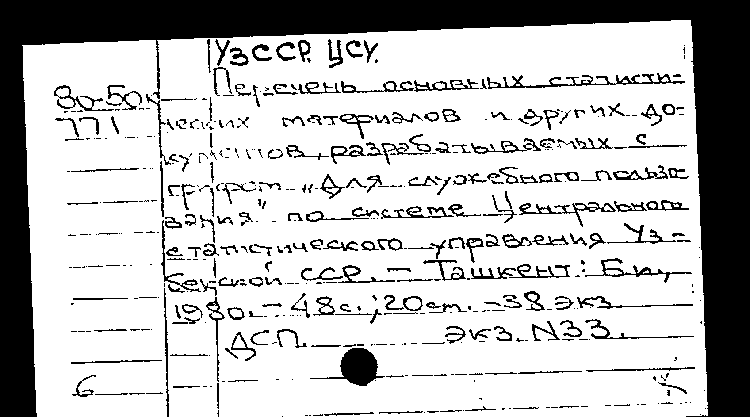 УзССР. ЦСУ.
80-50к
771
Перечень основных статисти-
ческих материалов и других до-
кументов, разрабатываемых с
грифом "Для служебного пользо-
вания" по системе Центрального
статистического управления Уз-
бекской ССР. - Ташкент: Б.и.,
1980. - 48с.; 20см. - 38 экз.
ДСП. экз. N33.
6